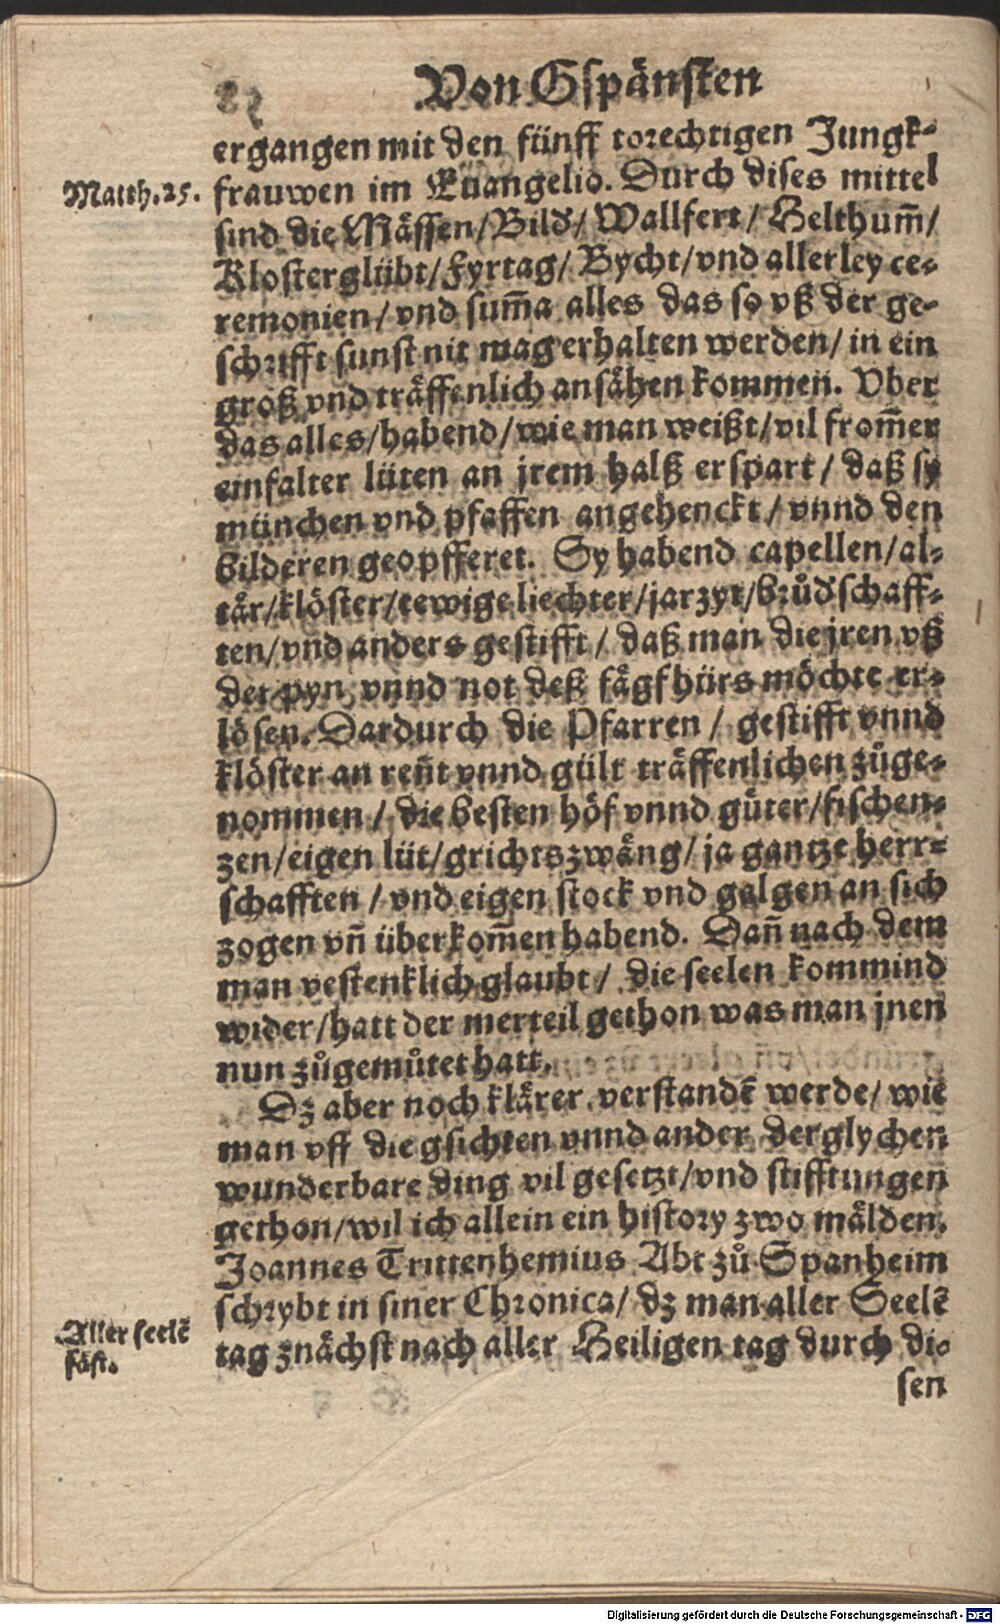 Von Gspänsten
ergangen mit den fünff torechtigen Jungk-
Matth. 25.
frauwen im Euangelio. Durch dises mittel
sind die Mässen/Bild/Wallfert/Helthum̄/
Klosterglübt/fyrtag/Bycht/vnd allerley ce-
remonien/vnd sum̄a alles das so vß der ge-
schrifft sunst nit mag erhalten werden/in ein
groß vnd träffenlich ansähen kommen. Vber
das alles/habend/wie man weißt/vil from̄er
einfalter lüten an jrem halß erspart/daß sy
münchen vnd pfaffen angehenckt/vnnd den
bilderen geopfferet. Sy habend capellen/al-
tår/klöster/eewige liechter/jarzyt/brůdschaff-
ten/vnd anders gestifft/daß man die jren vß
der pyn vnnd not deß fägfhürs möchte er-
lösen. Dardurch die Pfarren/gestifft vnnd
klöster an ren̄t vnnd gült träffenlichen zůge-
nommen/die besten höf vnnd gůter/fischen-
zen/eigen lüt/grichtszwäng/ja gantze herr-
schafften/vnd eigen stock vnd galgen an sich
zogen vn̄ überkom̄en habend. Dan̄ nach dem
man vestenklich glaubt/die seelen kommind
wider/hatt der merteil gethon was man jnen
nun zůgemůtet hatt.
Dz aber noch klärer verstandē werde/wie
man vff die gsichten vnnd ander derglychen
wunderbare ding vil gesetzt/vnd stifftungen
gethon/wil ich allein ein history zwo mälden.
Joannes Trittenhemius Abt zů Spanheim
schrybt in siner Chronica/dz man aller Seelē
Aller seelē
fäst.
tag znächst nach aller Heiligen tag durch di-
sen
Digitalisierung gefördert durch die Deutsche Forschungsgemeinschaft - DFG